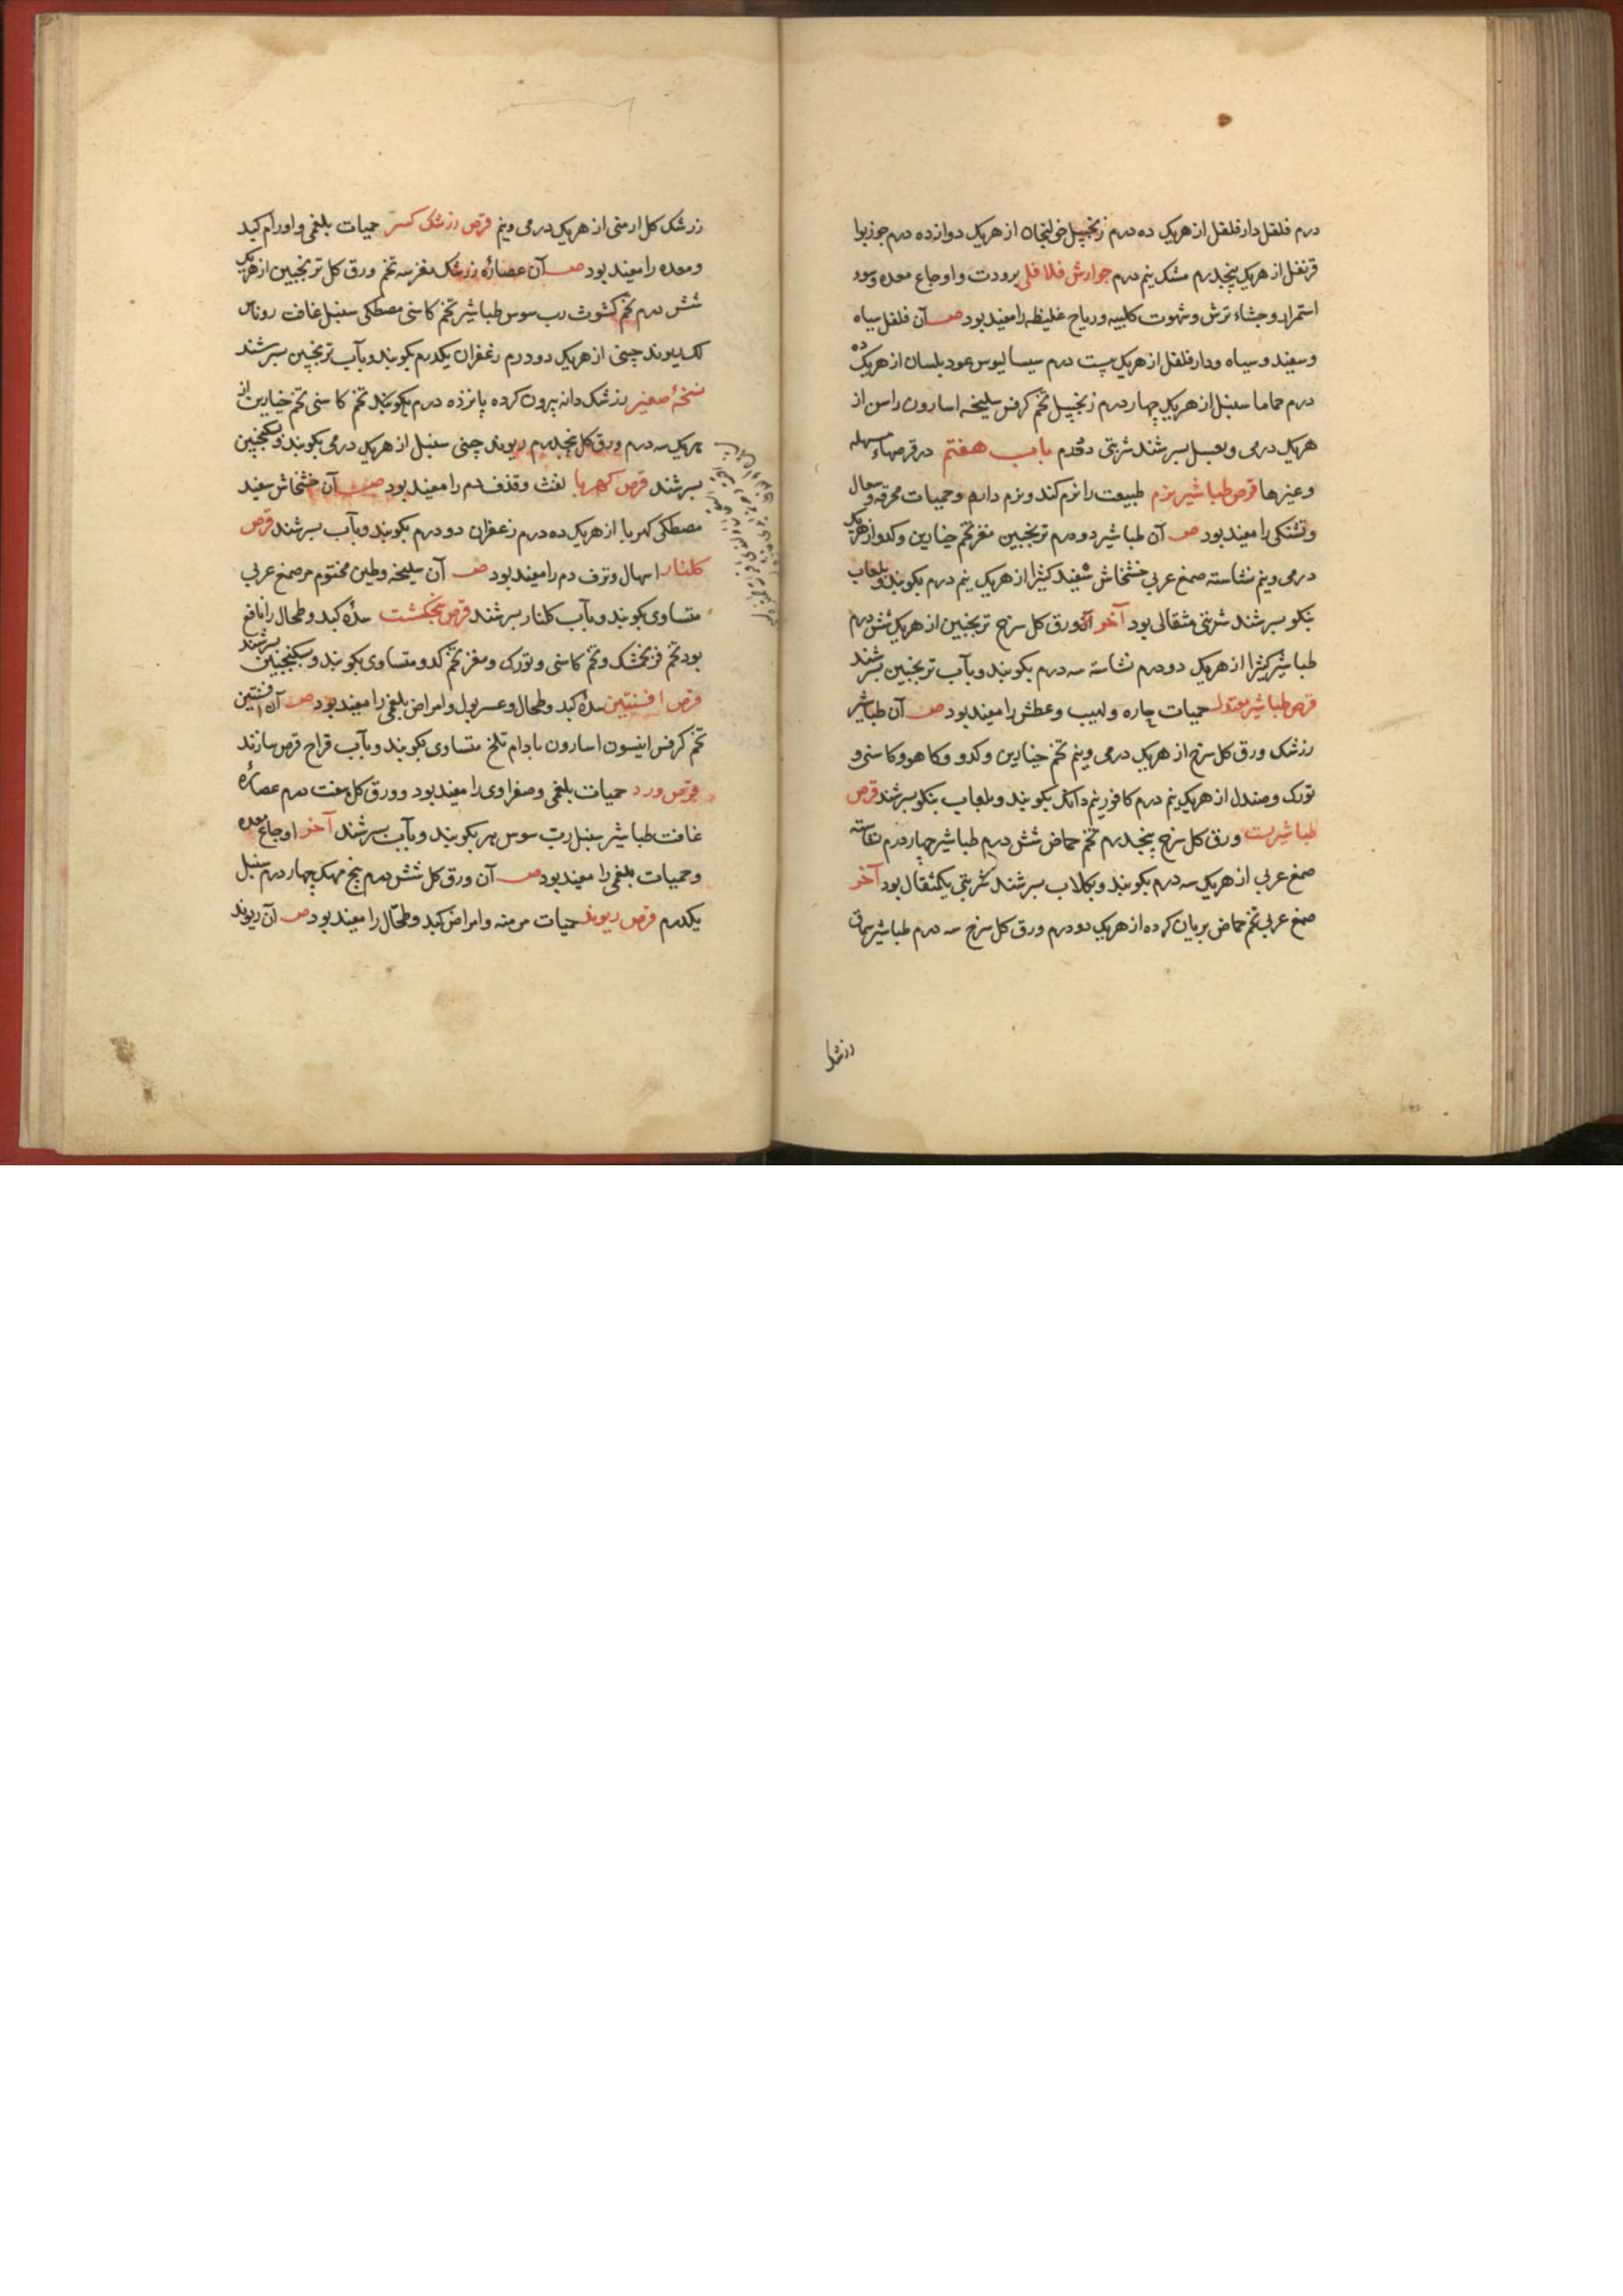 درم فلفل دارفلفل از هریک ده درم زنجبیل خولنجان از هریک دوازده درم جوزبوا
قرنفل از هریک پنجدرم مشک نیم درم جوارش فلافلی برودت و اوجاع معده وسوء
استمراء وجشاء ترش وشهوت کلبیه وریاح غلیظه را مفید بود صفـ آن فلفل سیاه
وسفید وسیاه ودارفلفل از هریک بیست درم سیسالیوس عود بلسان از هریک ده
درم حماما سنبل از هریک چهار درم زنجبیل تخم کرفس سلیخه اسارون راسن از
هریک درمی وبعسل بسرشند شربتی دو درم باب هفتم در قرصهاء مسهله
وغیرها قرص طباشیر نرم طبیعت را نرم کند ونرم دارد وحمیات محرقه وسعال
وتشنکی را مفید بود صفـ آن طباشیر دو درم ترنجبین مغز تخم خیارین وکدو از هریک
درمی ونیم نشاسته صمغ عربی خشخاش سفید کثیرا از هریک نیم درم بکوبند وبلعاب
بنکو بسرشند شربتی مثقالی بود آخر آن ورق کل سرخ ترنجبین از هریک شش درم
طباشیر کثیرا از هریک دو درم نشاسته سه درم بکوبند وبآب ترنجبین بسرشند
قرص طباشیر معتدل حمیات حاره ولهیب وعطش را مفید بود صفـ آن طباشیر
زرشک ورق کل سرخ از هریک درمی ونیم تخم خیارین وکدو وکاهو وکاسنی و
تورک وصندل از هریک نیم درم کافور نیم دانک بکوبند وبلعاب بنکو بسرشند قرص
طباشیر بست ورق کل سرخ پنجدرم تخم حماض شش درم طباشیر چهار درم نشاسته
صمغ عربی از هریک سه درم بکوبند وبکلاب بسرشند شربتی یکمثقال بود آخر
صمغ عربی تخم حماض بریان کرده از هریک دو درم ورق کل سرخ سه درم طباشیر سماق
زرشک
زرشک کل ارمنی از هریک درمی ونیم قرص زرشک کبیر حمیات بلغمی واورام کبد
ومعده را مفید بود صفـ آن عصارهٔ زرشک مغز سه تخم ورق کل ترنجبین از هریک
شش درم تخم کشوث رب سوس طباشیر تخم کاسنی مصطکی سنبل غافت روناس
لک ریوند چینی از هریک دو درم زعفران یکدرم بکوبند وبآب ترنجبین بسرشند
نسخهٔ صغیر زرشک دانه بیرون کرده پانزده درم بکوبند تخم کاسنی تخم خیارین از
هریک سه درم ورق کل پنجدرم ریوند چینی سنبل از هریک درمی بکوبند وبسکنجبین
بسرشند قرص کهربا نفث وقذف دم را مفید بود صفـ آن خشخاش سفید
مصطکی کهربا از هریک ده درم زعفران دو درم بکوبند وبآب بسرشند قرص
کلنار اسهال ونزف دم را مفید بود صفـ آن سلیخه وطین مختوم مر صمغ عربی
متساوی بکوبند وبآب کلنار بسرشند قرص پنجنکشت سدهٔ کبد وطحال را نافع
بود تخم فرنجمشک وتخم کاسنی وتورک ومغز تخم کدو متساوی بکوبند وبسکنجبین بسرشند
قرص افسنتین سدهٔ کبد وطحال وعسر بول وامراض بلغمی را مفید بود صفـ آن افسنتین
تخم کرفس انیسون اسارون بادام تلخ متساوی بکوبند وبآب قراح قرص سازند
قرص ورد حمیات بلغمی وصفراوی را مفید بود وورق کل هفت درم عصارهٔ
غافت طباشیر سنبل رب سوس بهر بکوبند وبآب بسرشند آخر اوجاع معده
وحمیات بلغمی را مفید بود صفـ آن ورق کل شش درم بیخ مهک چهار درم سنبل
یکدرم قرص ریوند حمیات مزمنه وامراض کبد وطحال را مفید بود صفـ آن ریوند